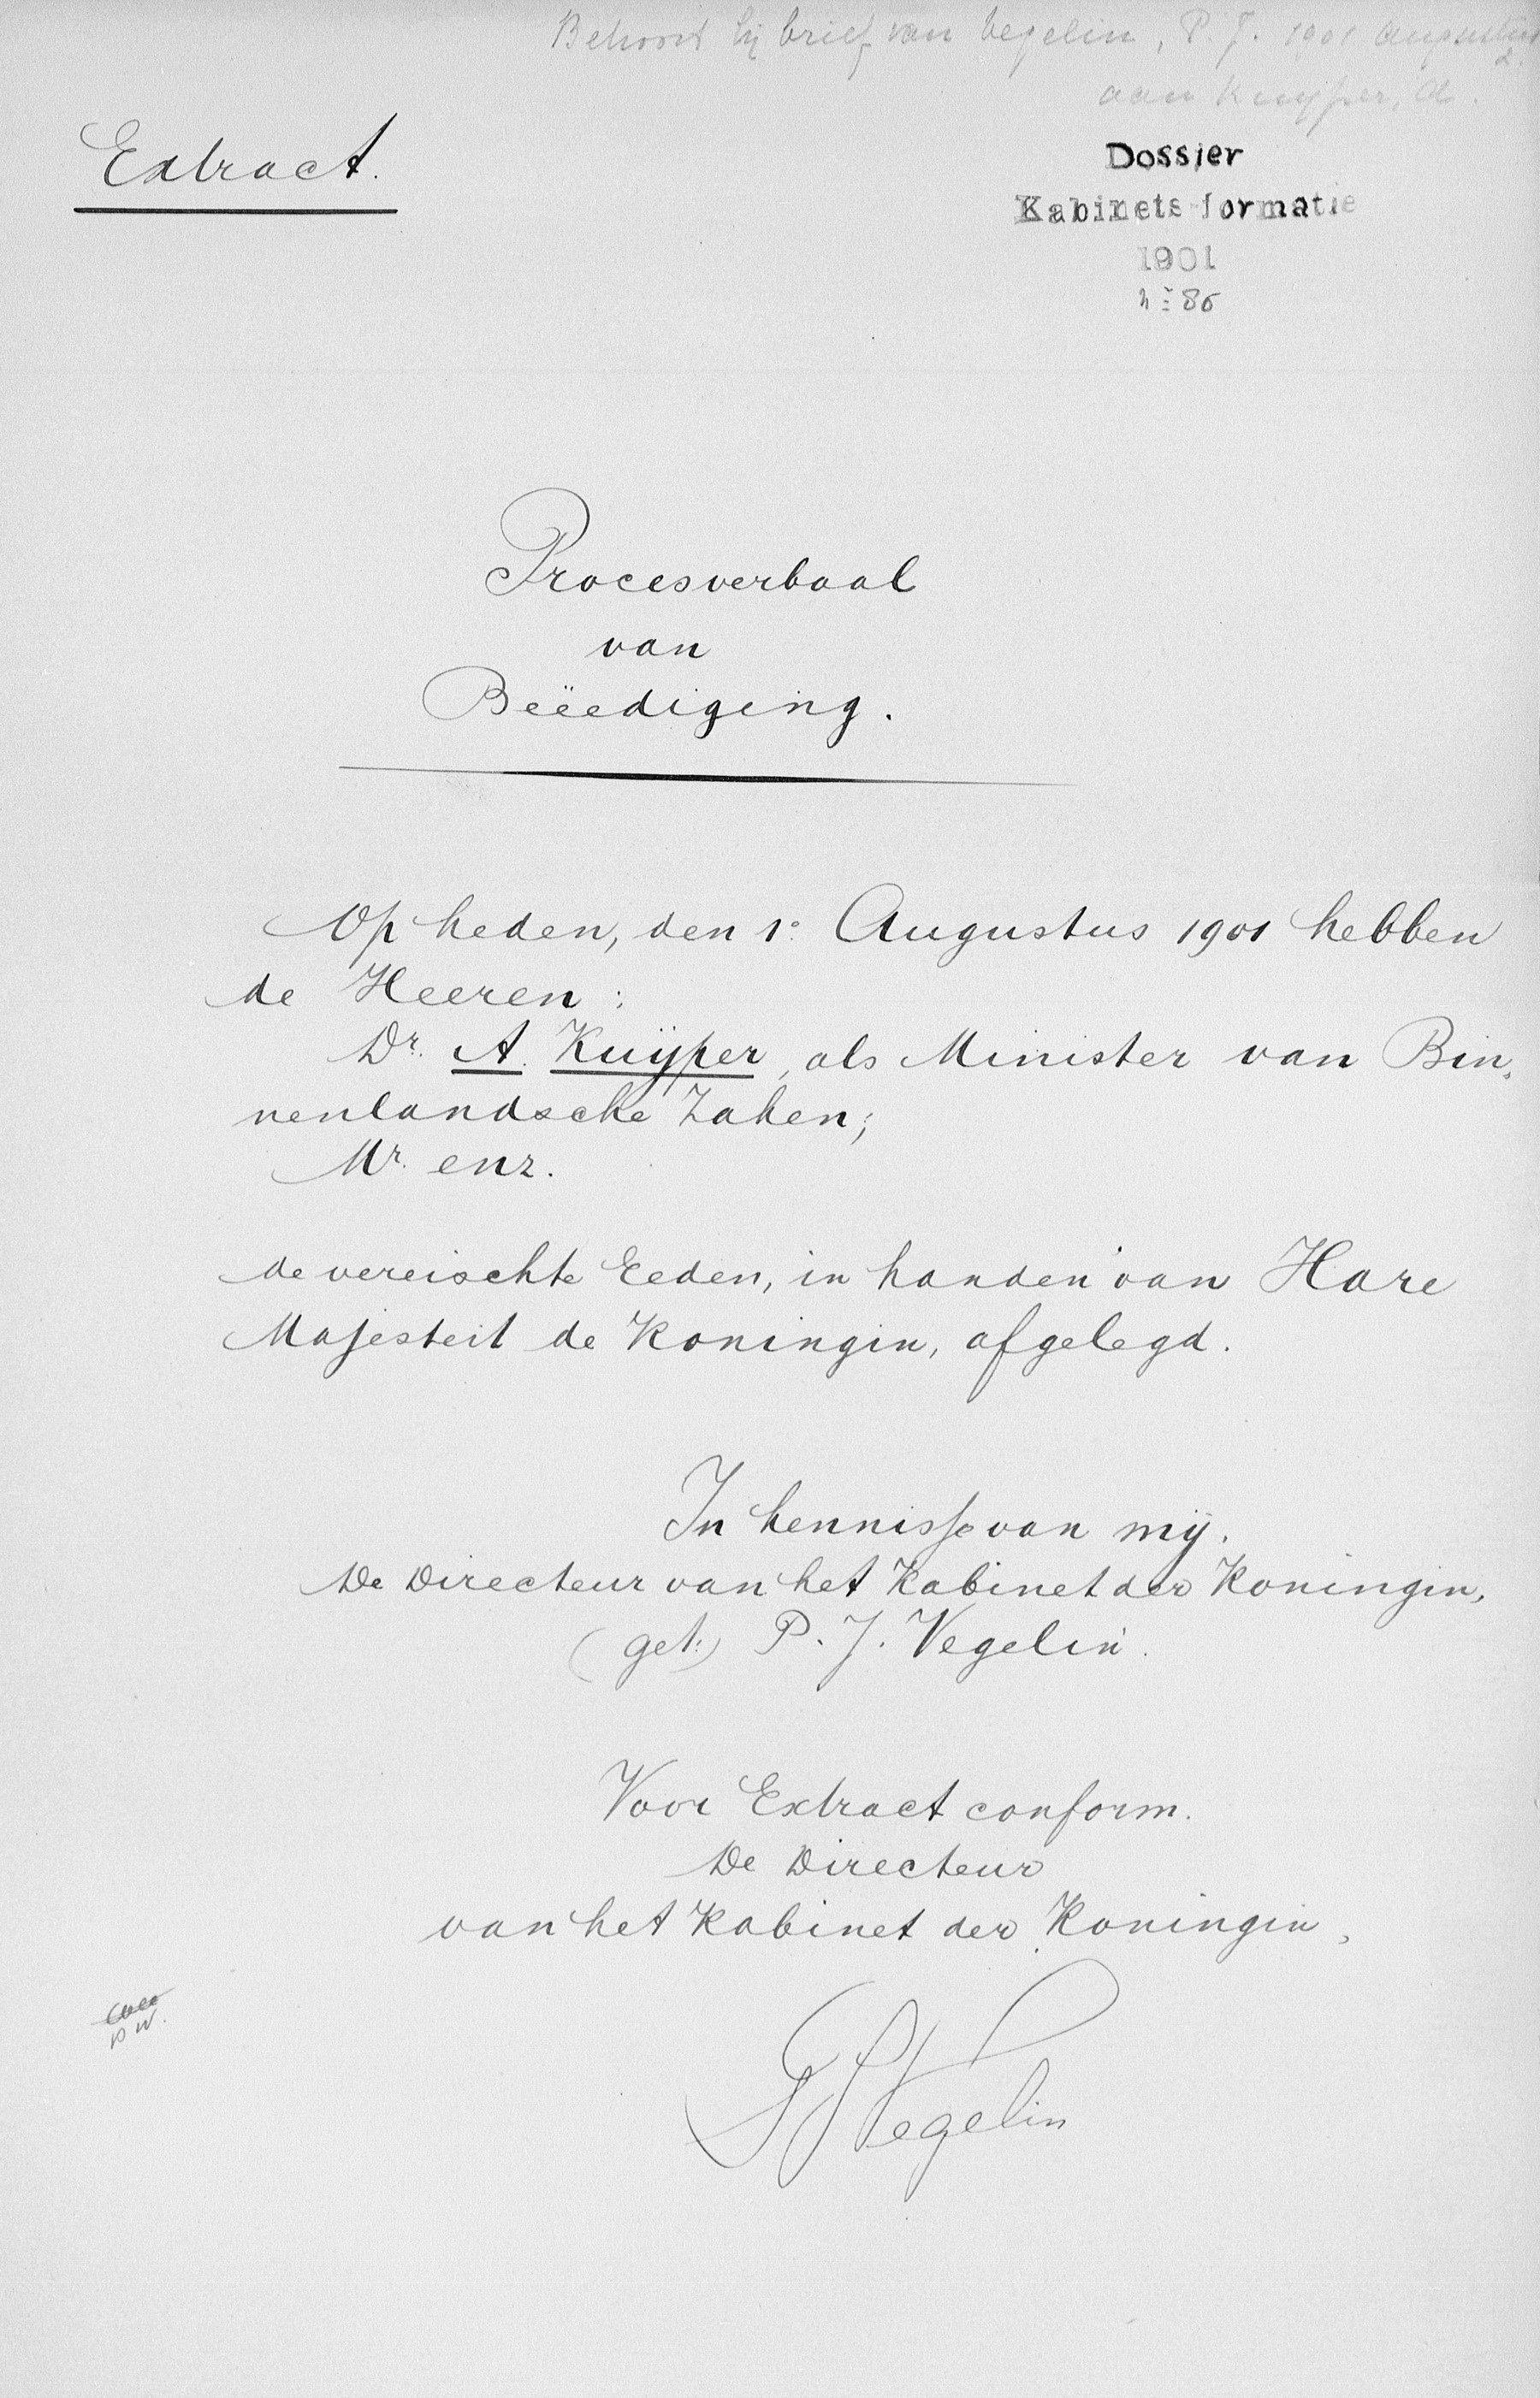 Behoort bij brief van Vegelin, P. J. 1901 Augustus 2.
aan Kuyper, A.
Extract.
Dossier
Kabinets-formatie
1901
no 86
Procesverbaal
van
Beëediging.
Op heden, den 1e Augustus 1901 hebben
de Heeren:
Dr. A. Kuÿper, als Minister van Bin-
nenlandsche Zaken;
Mr. enz.
de vereischte Eeden, in handen van Hare
Majesteit de Koningin, afgelegd.
In kennisse van mij.
De Directeur van het Kabinet der Koningin,
(get:) P. J. Vegelin.
Voor Extract conform.
De Directeur
van het Kabinet der Koningin,
PJVegelin